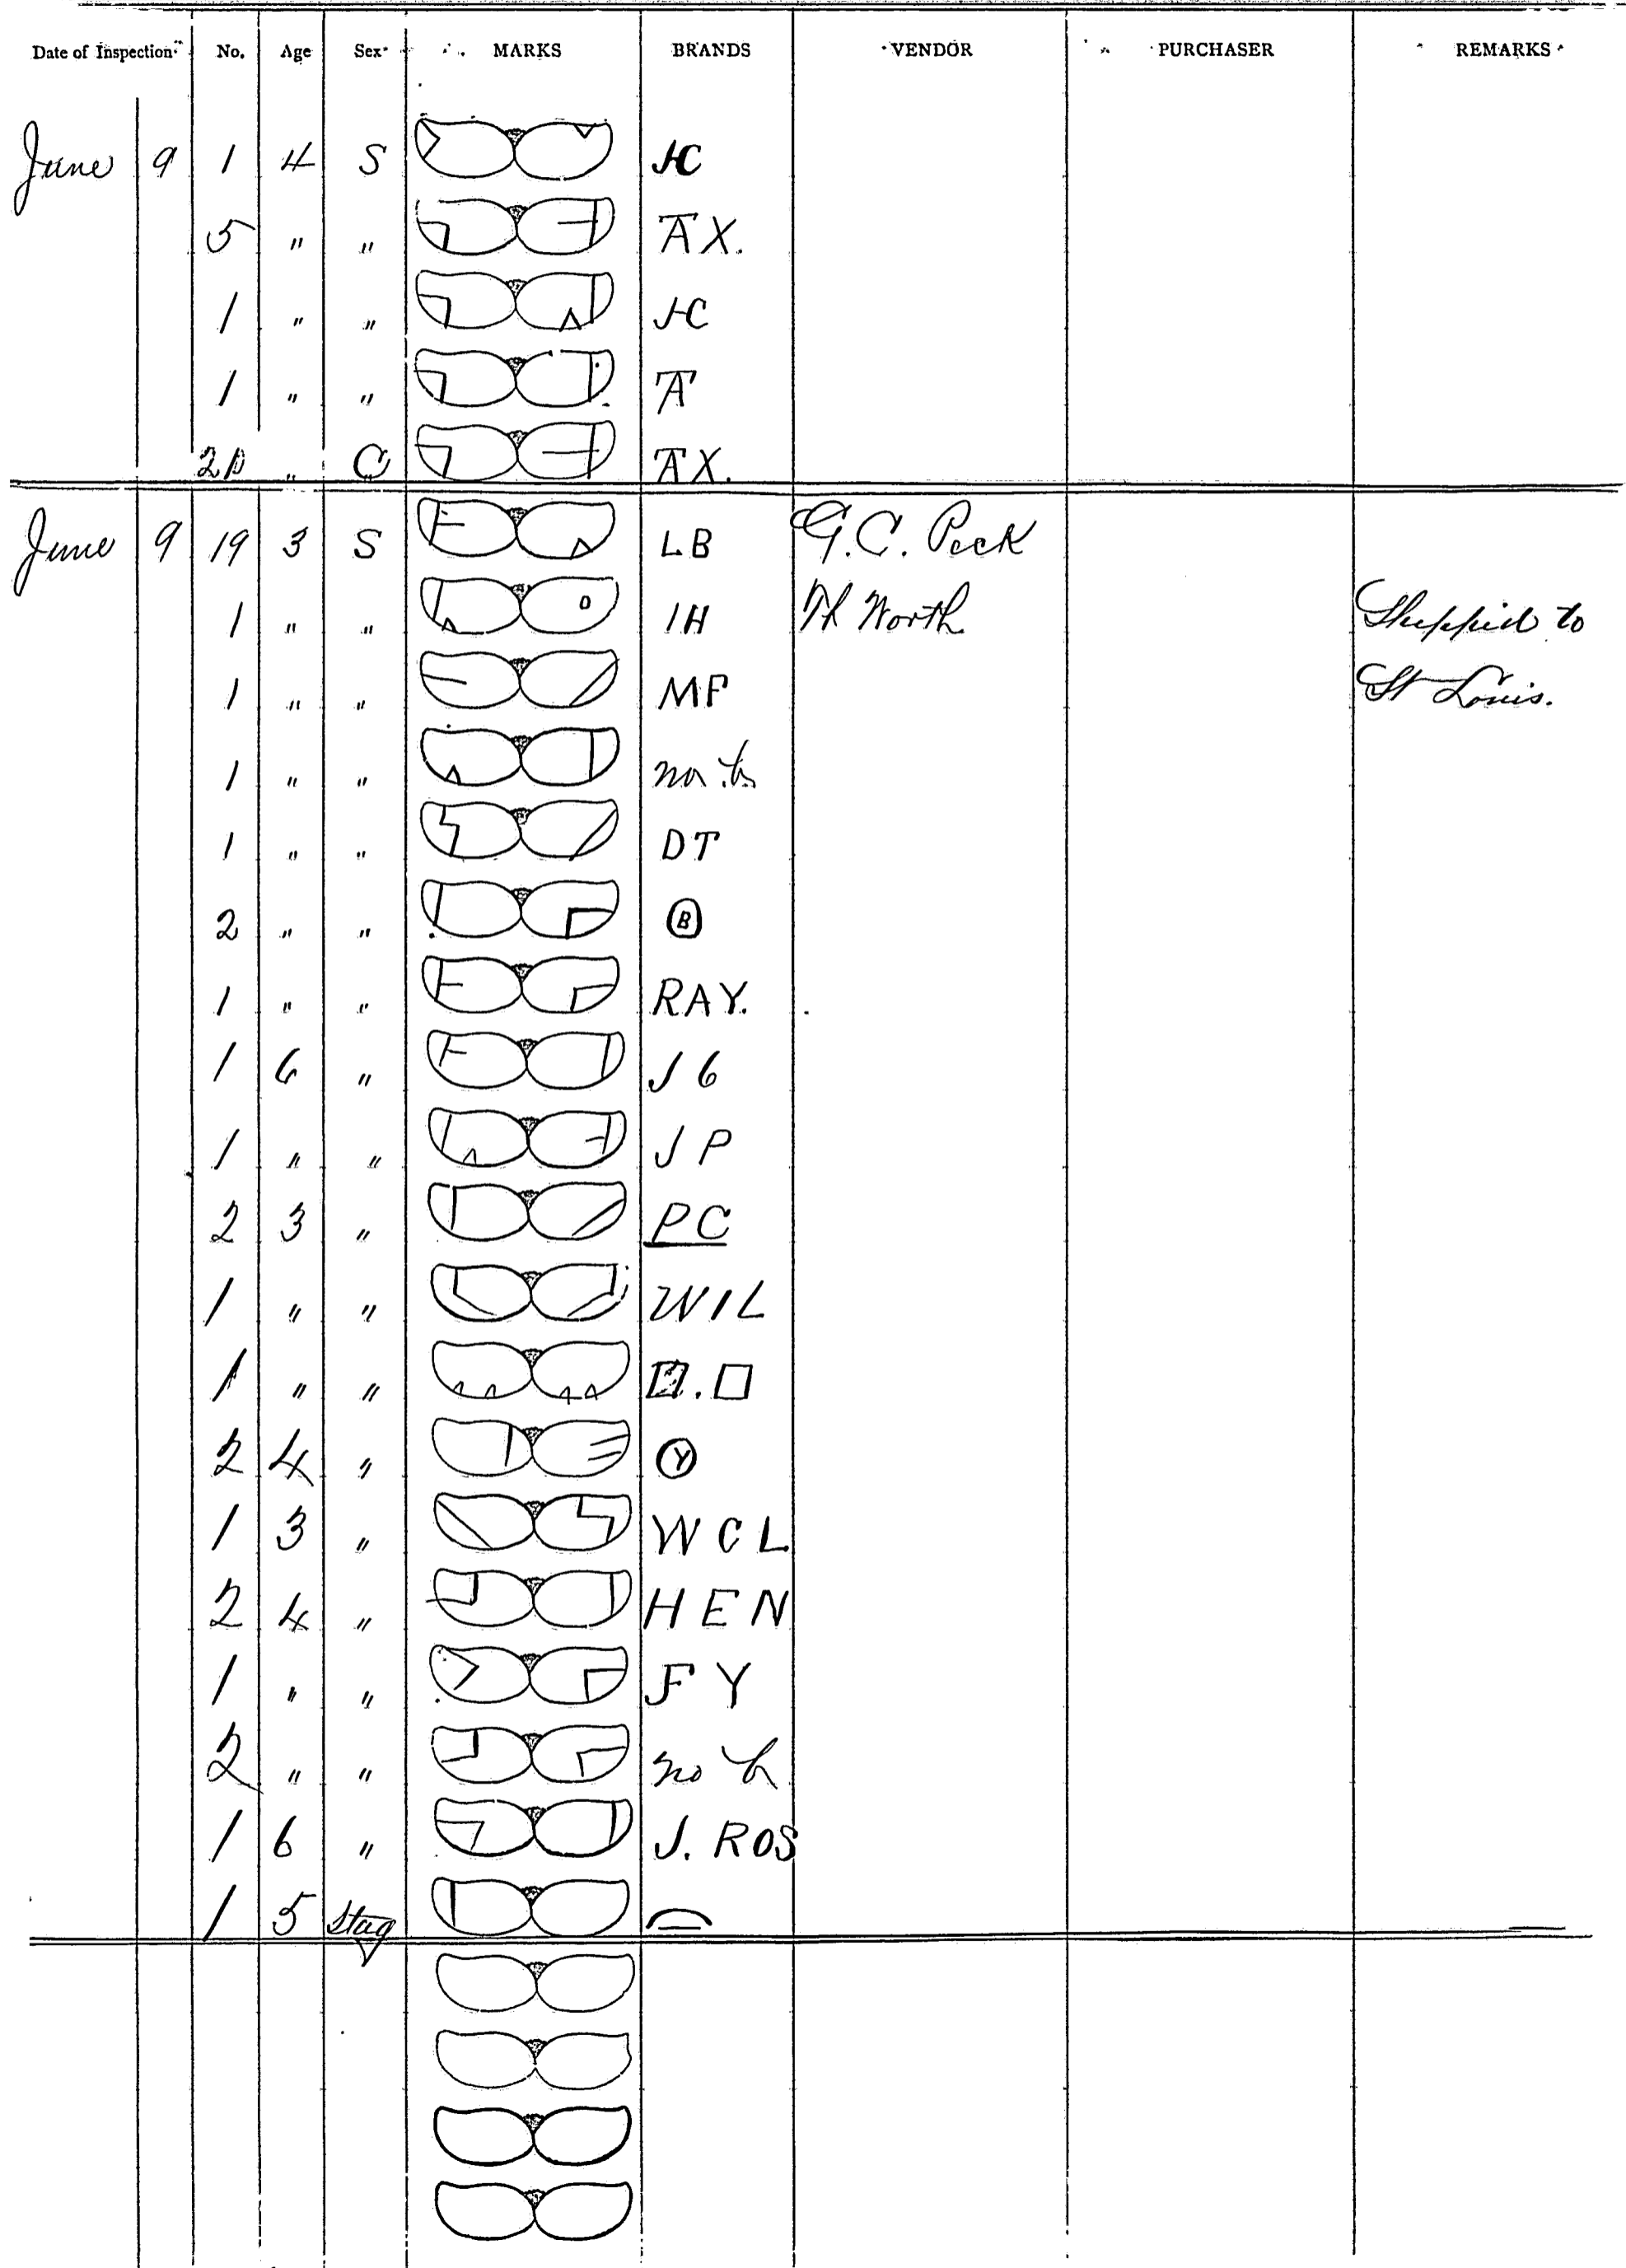 Date of Inspection No. Age Sex MARKS BRANDS VENDOR PURCHASER REMARKS
June 9 1 4 S JC
5 " " AX.
1 " " JC
1 " " A
" C AX.
June 9 19 3 S LB G.C. Peck
1 " " IH Worth Shippid to
1 " " MF St Louis.
1 " " no b
1 " " DT
2 " " B
1 " " RAY.
1 6 " J 6
1 " " J P
2 3 " PC
1 " " WIL
1 " "
2 4 " Y
1 3 " W C L
2 4 " H E N
1 " " F Y
2 " " no b
1 6 " J. ROS
1 5 Stag